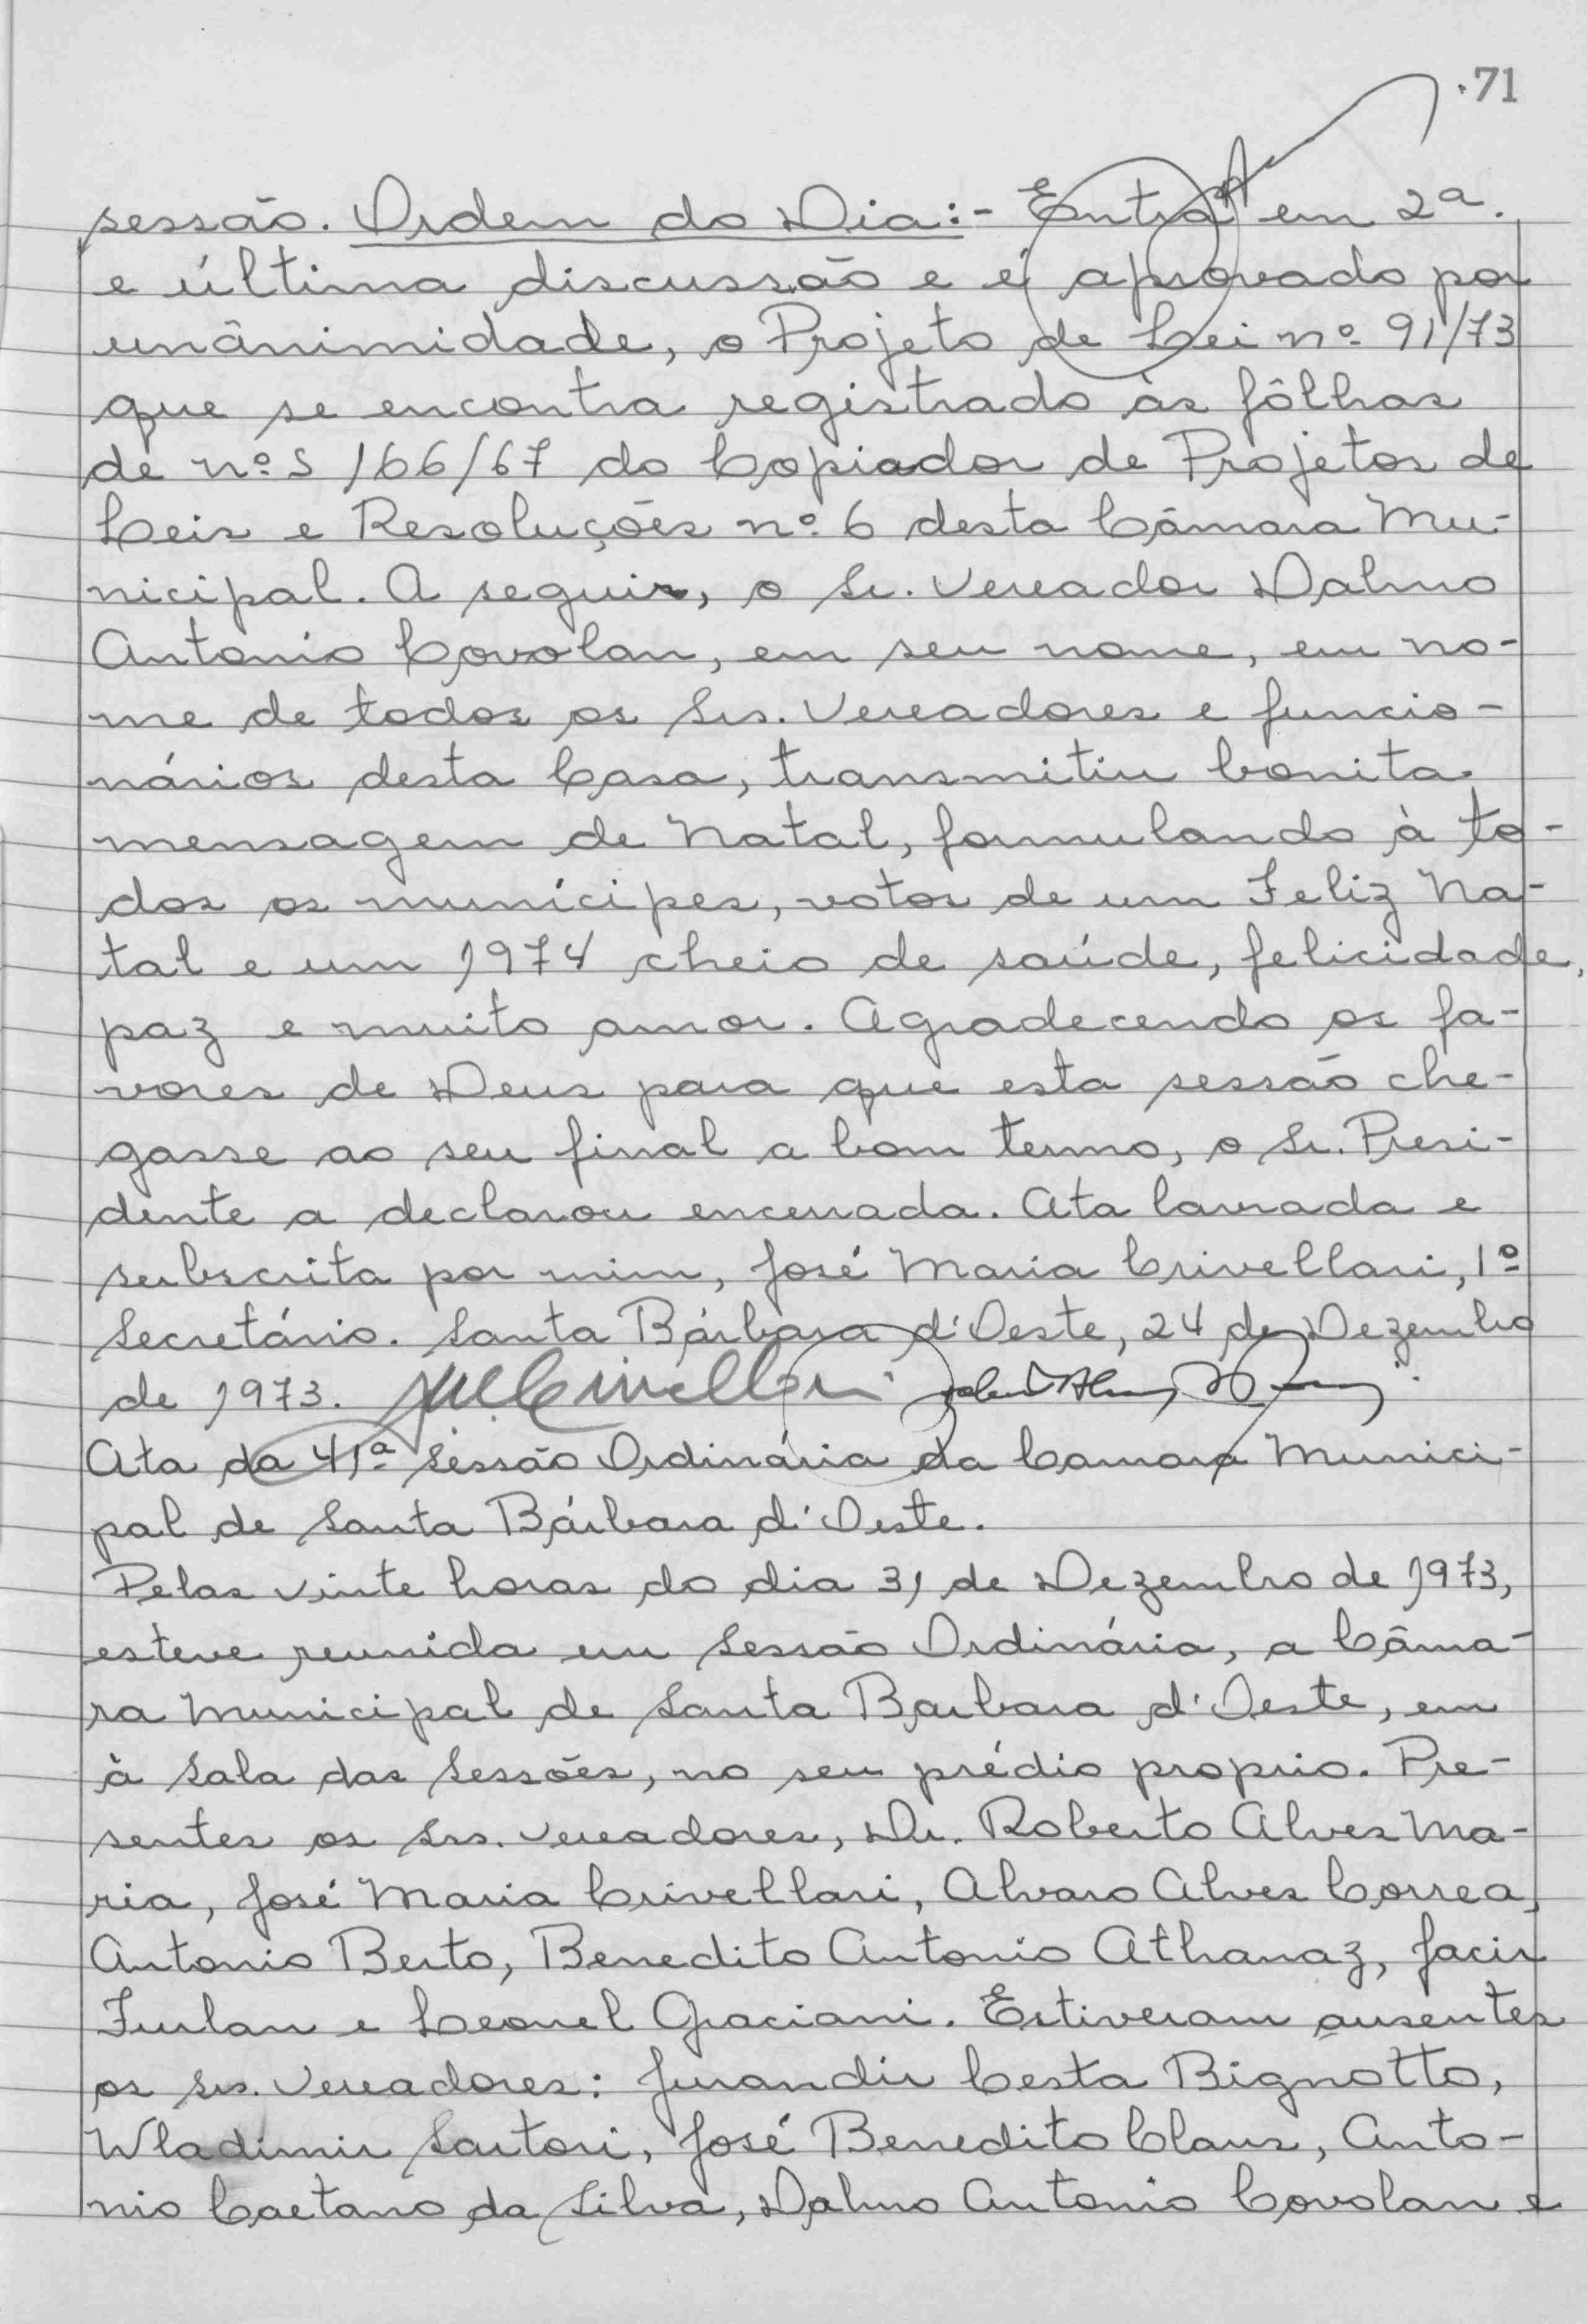 71
sessão. Ordem do Dia:- Entra em 2a.
e última discussão e é aprovado por
unânimidade, o Projeto de Lei nº 91/73
que se encontra registrado às fôlhas
de nºs 166/67 do Copiador de Projetos de
Leis e Resoluções nº 6 desta Câmara Mu-
nicipal. A seguir, o Sr. Vereador Dalmo
Antonio Covolan, em seu nome, em no-
me de todos os Srs. Vereadores e funcio-
nários desta Casa, transmitiu bonita
mensagem de Natal, formulando à to-
dos os munícipes, votos de um Feliz Na-
tal e um 1974 cheio de saúde, felicidade,
paz e muito amor. Agradecendo os fa-
vores de Deus para que esta sessão che-
gasse ao seu final a bom termo, o Sr. Presi-
dente a declarou encerrada. Ata lavrada e
subscrita por mim, José Maria Crivellari, 1º
Secretário. Santa Bárbara d'Oeste, 24 de Dezembro
de 1973.
Ata da 41ª Sessão Ordinária da Camara Munici-
pal de Santa Bárbara d'Oeste.
Pelas vinte horas do dia 31 de Dezembro de 1973,
esteve reunida em Sessão Ordinária, a Câma-
ra Municipal de Santa Barbara d'Oeste, em
à Sala das Sessões, no seu prédio proprio. Pre-
sentes os Srs. Vereadores, Dr. Roberto Alves Ma-
ria, José Maria Crivellari, Alvaro Alves Correa,
Antonio Berto, Benedito Antonio Athanaz, Jacir
Furlan e Leonel Graciani. Estiveram ausentes
os Srs. Vereadores: Jurandir Cesta Bignotto,
Wladimir Sartori, José Benedito Claus, Anto-
nio Caetano da Silva, Dalmo Antonio Covolan e